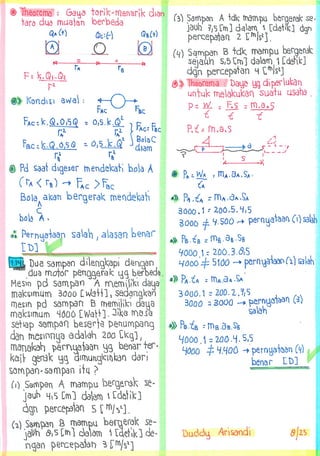 Theorema : Gaya tarik-menarik dian
tara dua muatan berbeda
QA (+) QC (-) QB (+)
A C B
rA rB
F = k.Q1.Q2
r²
Kondisi awal :
FAC FBC
FAC = k.Q.0,5Q = 0,5.k.Q²
rA² rA²
FBC = k.Q.0,5Q = 0,5.k.Q²
rB² rB²
FAC = FBC
Bola C
diam
Pd saat digeser mendekati bola A
(rA < rB) → FAC > FBC
Bola akan bergerak mendekati
C
bola A.
Pernyataan salah, alasan benar
[D]
Dua sampan dilengkapi dengan
dua motor penggerak yg berbeda.
Mesin pd sampan A memiliki daya
maksimum 3000 [Watt], sedangkan
mesin pd sampan B memiliki daya
maksimum 4000 [Watt]. Jika massa
setiap sampan beserta penumpang
dan mesinnya adalah 200 [kg],
manakah pernyataan yg benar ter-
kait gerak yg dimungkinkan dari
sampan-sampan itu ?
(1) Sampan A mampu bergerak se-
jauh 4,5 [m] dalam 1 [detik]
dgn percepatan 5 [m/s²].
(2) Sampan B mampu bergerak se-
jauh 8,5 [m] dalam 1 [detik] de-
ngan percepatan 3 [m/s²]
(3) Sampan A tdk mampu bergerak se-
jauh 7,5 [m] dalam 1 [detik] dgn
percepatan 2 [m/s²].
(4) Sampan B tdk mampu bergerak
sejauh 5,5 [m] dalam 1 [detik]
dgn percepatan 4 [m/s²]
Theorema : Daya yg diperlukan
untuk melakukan suatu usaha.
P = W = F.s = m.a.s
t t t
P.t = m.a.s
s
PA = WA , mA.aA.SA
tA
PA.tA = mA.aA.SA
3000.1 = 200.5.4,5
3000 ≠ 4.500 → pernyataan (1) salah
PB.tB = mB.aB.SB
4000.1 = 200.3.8,5
4000 ≠ 5100 → pernyataan (2) salah
PA.tA = mA.aA.SA
3000.1 = 200.2.7,5
3000 = 3000 → pernyataan (3)
salah
PB.tB = mB.aB.SB
4000.1 = 200.4.5,5
4000 ≠ 4.400 → pernyataan (4)
benar [D]
Duddy Arisandi 8/25